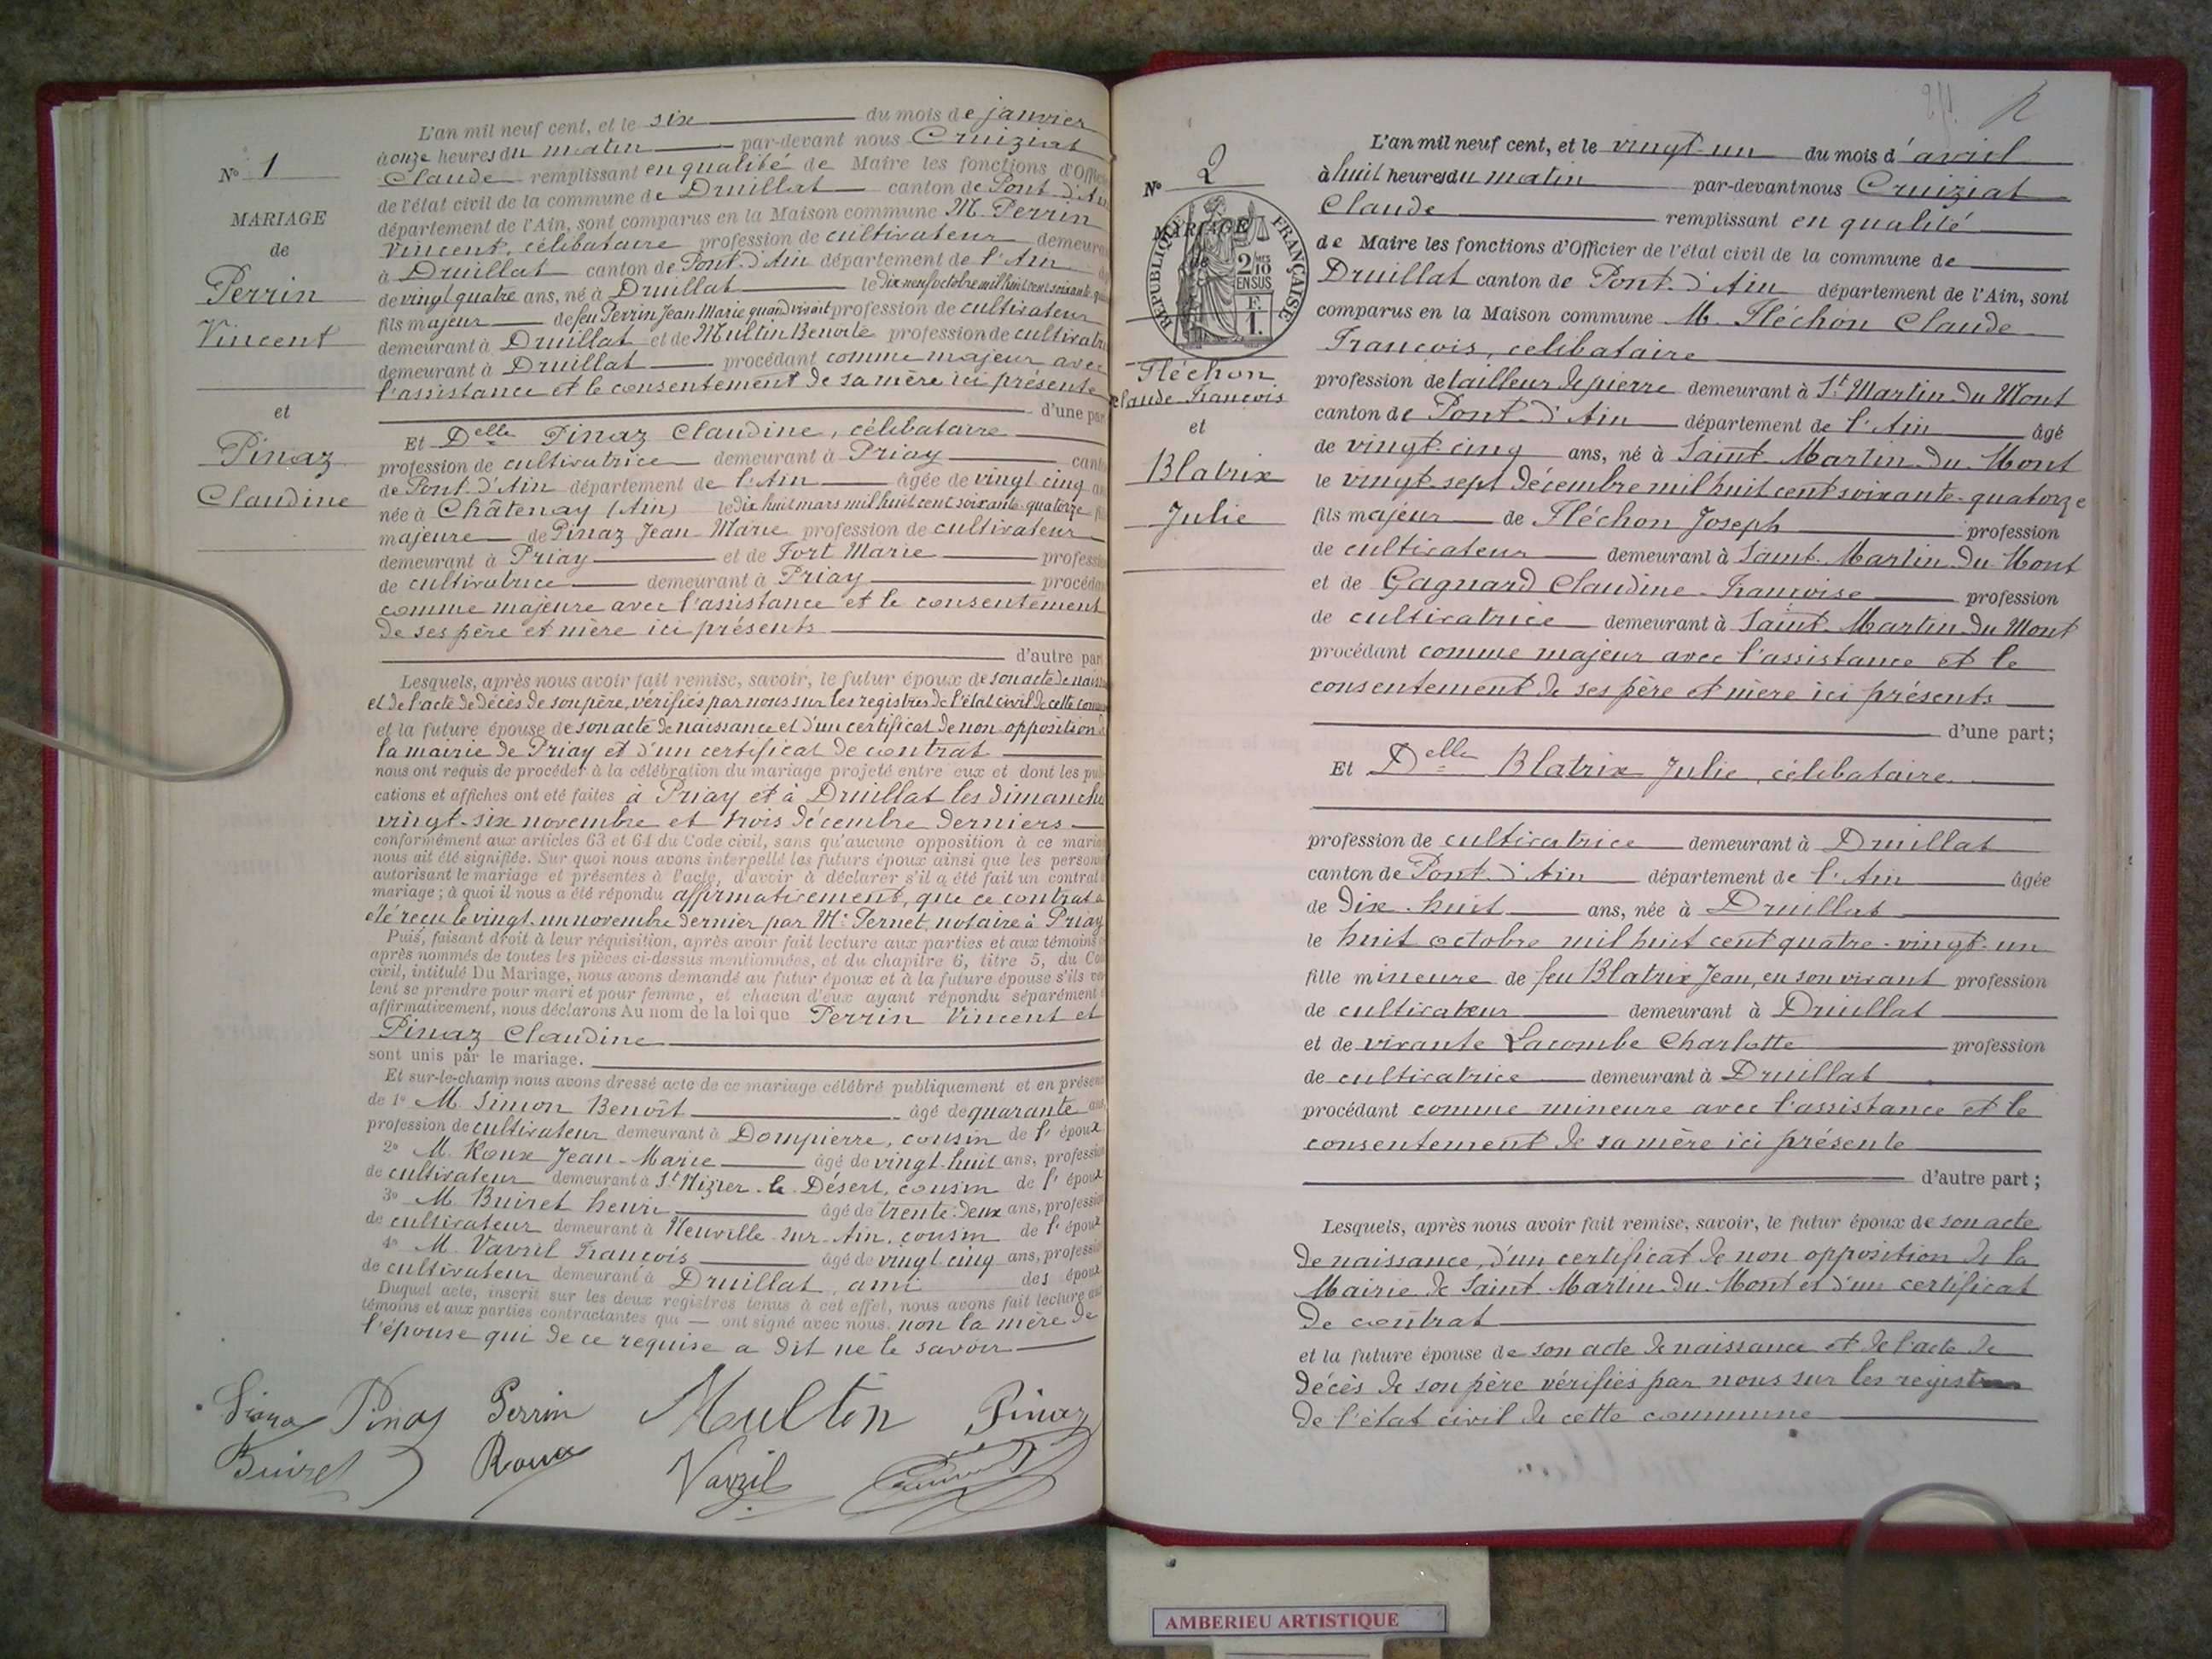 N° 1
MARIAGE
de
Perrin
Vincent
et
Pinaz
Claudine
L'an mil neuf cent, et le six du mois de janvier
à onze heures du matin par-devant nous Cruiziat
Claude remplissant en qualité de Maire les fonctions d'Offic
de l'état civil de la commune de Druillat canton de Pont d'Ain
département de l'Ain, sont comparus en la Maison commune M. Perrin
Vincent, célibataire profession de cultivateur demeura
à Druillat canton de Pont d'Ain département de l'Ain
de vingt quatre ans, né à Druillat le dix neuf octobre mil huit cent soixante
fils majeur de feu Perrin Jean Marie quand vivait profession de cultivateur
demeurant à Druillat et de Multin Benoite profession de cultivatr
demeurant à Druillat procédant comme majeur avec
l'assistance et le consentement de sa mère ici présente
d'une par
Et Delle Pinaz Claudine, célibataire
profession de cultivatrice demeurant à Priay cant
de Pont d'Ain département de l'Ain âgée de vingt cinq
née à Châtenay (Ain) le dix huit mars mil huit cent soixante quatorze
majeure de Pinaz Jean Marie profession de cultivateur
demeurant à Priay et de Fort Marie professi
de cultivatrice demeurant à Priay procéda
comme majeure avec l'assistance et le consentement
de ses père et mère ici présents
d'autre par
Lesquels, après nous avoir fait remise, savoir, le futur époux de son acte de naiss
et de l'acte de décès de son père, vérifiés par nous sur les registres de l'état civil de cette comm
et la future épouse de son acte de naissance et d'un certificat de non opposition d
la mairie de Priay et d'un certificat de contrat
nous ont requis de procéder à la célébration du mariage projeté entre eux et dont les pub
cations et affiches ont été faites à Priay et à Druillat les dimanche
vingt-six novembre et trois décembre derniers
conformément aux articles 63 et 64 du Code civil, sans qu'aucune opposition à ce maria
nous ait été signifiée. Sur quoi nous avons interpellé les futurs époux ainsi que les person
autorisant le mariage et présentes à l'acte, d'avoir à déclarer s'il a été fait un contrat
mariage ; à quoi il nous a été répondu affirmativement, que ce contrat a
été reçu le vingt-un novembre dernier par Me Pernet, notaire à Priay
Puis, faisant droit à leur réquisition, après avoir fait lecture aux parties et aux témoins
après nommés de toutes les pièces ci-dessus mentionnées, et du chapitre 6, titre 5, du Co
civil, intitulé Du Mariage, nous avons demandé au futur époux et à la future épouse s'ils veu
lent se prendre pour mari et pour femme, et chacun d'eux ayant répondu séparément
affirmativement, nous déclarons Au nom de la loi que Perrin Vincent et
Pinaz Claudine
sont unis par le mariage.
Et sur-le-champ nous avons dressé acte de ce mariage célébré publiquement et en présen
de 1° M Simon Benoît âgé de quarante ans
profession de cultivateur demeurant à Dompierre, cousin de l'époux
2° M. Roux Jean-Marie âgé de vingt-huit ans, professi
de cultivateur demeurant à St Nizier-le-Désert, cousin de l'époux
3° M. Buiret henri âgé de trente-deux ans, professi
de cultivateur demeurant à Neuville-sur-Ain, cousin de l'époux
4° M. Vavril François âgé de vingt cinq ans, professi
de cultivateur demeurant à Druillat, ami des époux
Duquel acte, inscrit sur les deux registres tenus à cet effet, nous avons fait lecture aux
témoins et aux parties contractantes qui — ont signé avec nous, non la mère de
l'épouse qui de ce requise a dit ne le savoir
Pinaz Perrin Multin Pinaz
Buiret Roux Vavril
N° 2
MARIAGE
de
RÉPUBLIQUE FRANÇAISE
2/10 EN SUS
F.
1.
Fléchon
Claude François
et
Blatrix
Julie
L'an mil neuf cent, et le vingt-un du mois d'avril
à huit heures du matin par-devant nous Cruiziat
Claude remplissant en qualité
de Maire les fonctions d'Officier de l'état civil de la commune de
Druillat canton de Pont-d'Ain département de l'Ain, sont
comparus en la Maison commune M. Fléchon Claude
François, célibataire
profession de tailleur de pierre demeurant à St Martin du Mont
canton de Pont-d'Ain département de l'Ain âgé
de vingt-cinq ans, né à Saint-Martin-du-Mont
le vingt-sept décembre mil huit cent soixante-quatorze
fils majeur de Fléchon Joseph profession
de cultivateur demeurant à Saint-Martin-du-Mont
et de Gagnard Claudine-Françoise profession
de cultivatrice demeurant à Saint-Martin du Mont
procédant comme majeur avec l'assistance et le
consentement de ses père et mère ici présents
d'une part ;
Et Delle Blatrix Julie, célibataire
profession de cultivatrice demeurant à Druillat
canton de Pont-d'Ain département de l'Ain âgée
de dix-huit ans, née à Druillat
le huit octobre mil huit cent quatre-vingt-un
fille mineure de feu Blatrix Jean, en son vivant profession
de cultivateur demeurant à Druillat
et de vivante Lacombe Charlotte profession
de cultivatrice demeurant à Druillat
procédant comme mineure avec l'assistance et le
consentement de sa mère ici présente
d'autre part ;
Lesquels, après nous avoir fait remise, savoir, le futur époux de son acte
de naissance, d'un certificat de non opposition de la
Mairie de Saint-Martin-du-Mont et d'un certificat
de contrat
et la future épouse de son acte de naissance et de l'acte de
décès de son père vérifiés par nous sur les registres
de l'état civil de cette commune
AMBERIEU ARTISTIQUE